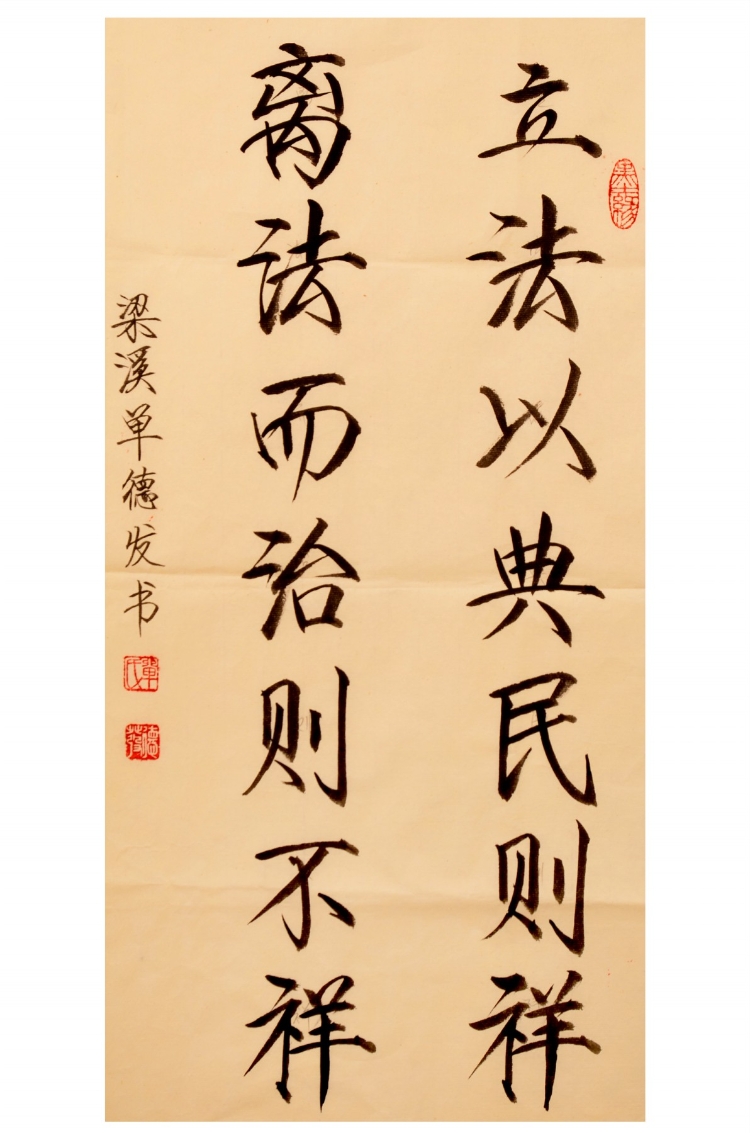 立法以典民则祥
离法而治则不祥
梁溪单德发书
单氏
德发